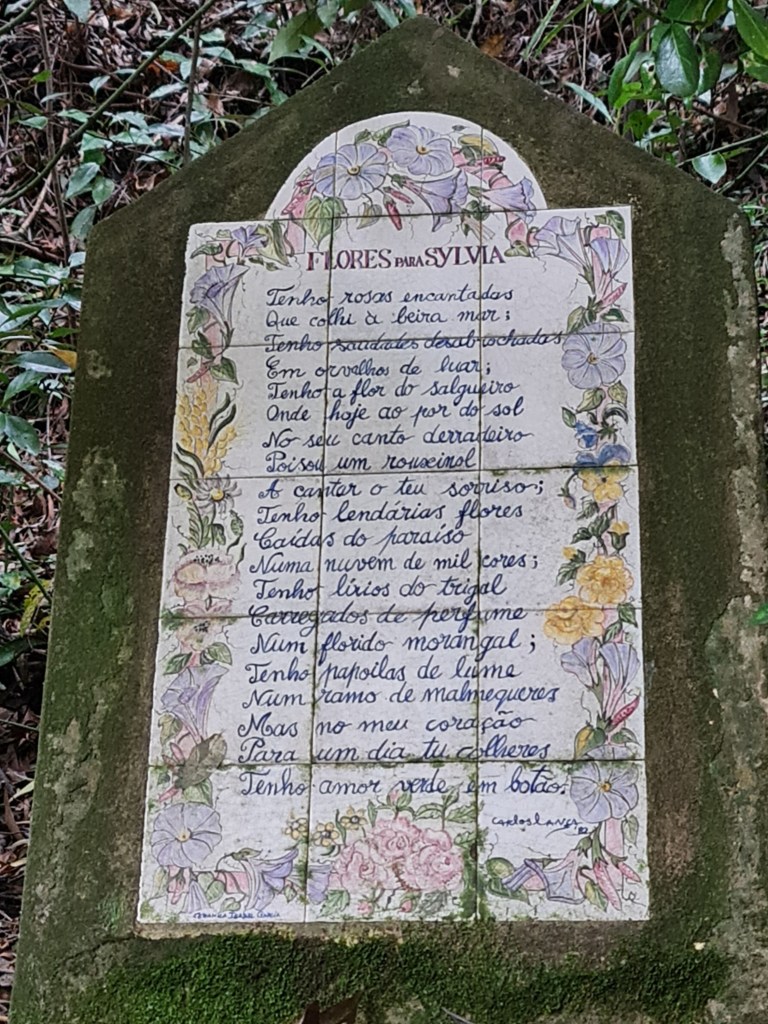 FLORES PARA SYLVIA
Tenho rosas encantadas
Que colhi à beira mar;
Tenho saudades desabrochadas
Em orvalhos de luar;
Tenho a flor do salgueiro
Onde hoje ao por do sol
No seu canto derradeiro
Poisou um rouxinol
A cantar o teu sorriso;
Tenho lendárias flores
Caídas do paraíso
Numa nuvem de mil cores;
Tenho lírios do trigal
Carregados de perfume
Num florido morangal;
Tenho papoilas de lume
Num ramo de malmequeres
Mas no meu coração
Para um dia tu colheres
Tenho amor verde em botão.
82